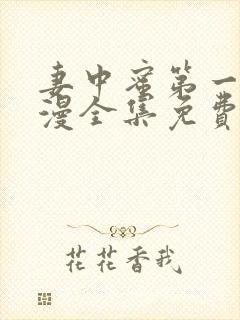 妻中蜜第一
漫全集免费
花花香我